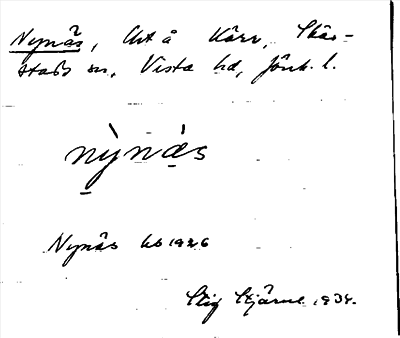 Nynäs, lht å Kärr, Skär-
stads sn, Vista hd, Jönk. l.
nỳnä́s
Nynäs hs 1926
Stig Stjärne 1934.